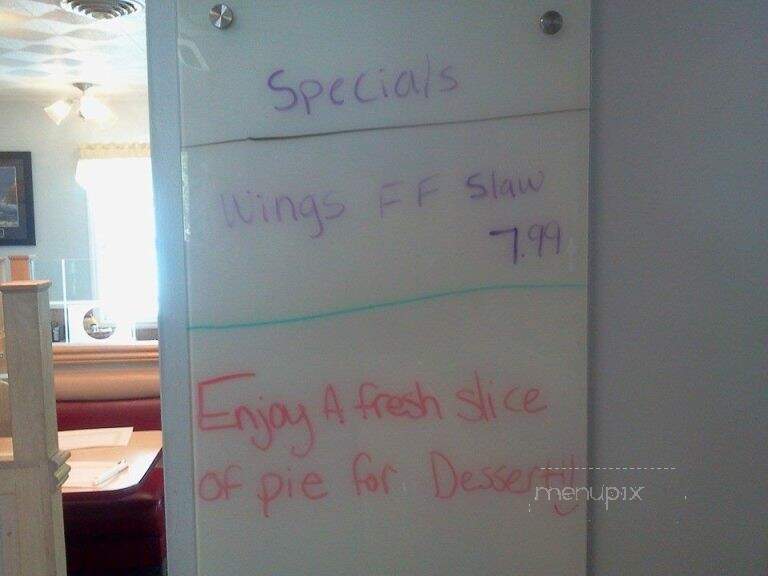 Specials
Wings FF Slaw
7.99
Enjoy A fresh slice
of pie for Dessert!!
menupix